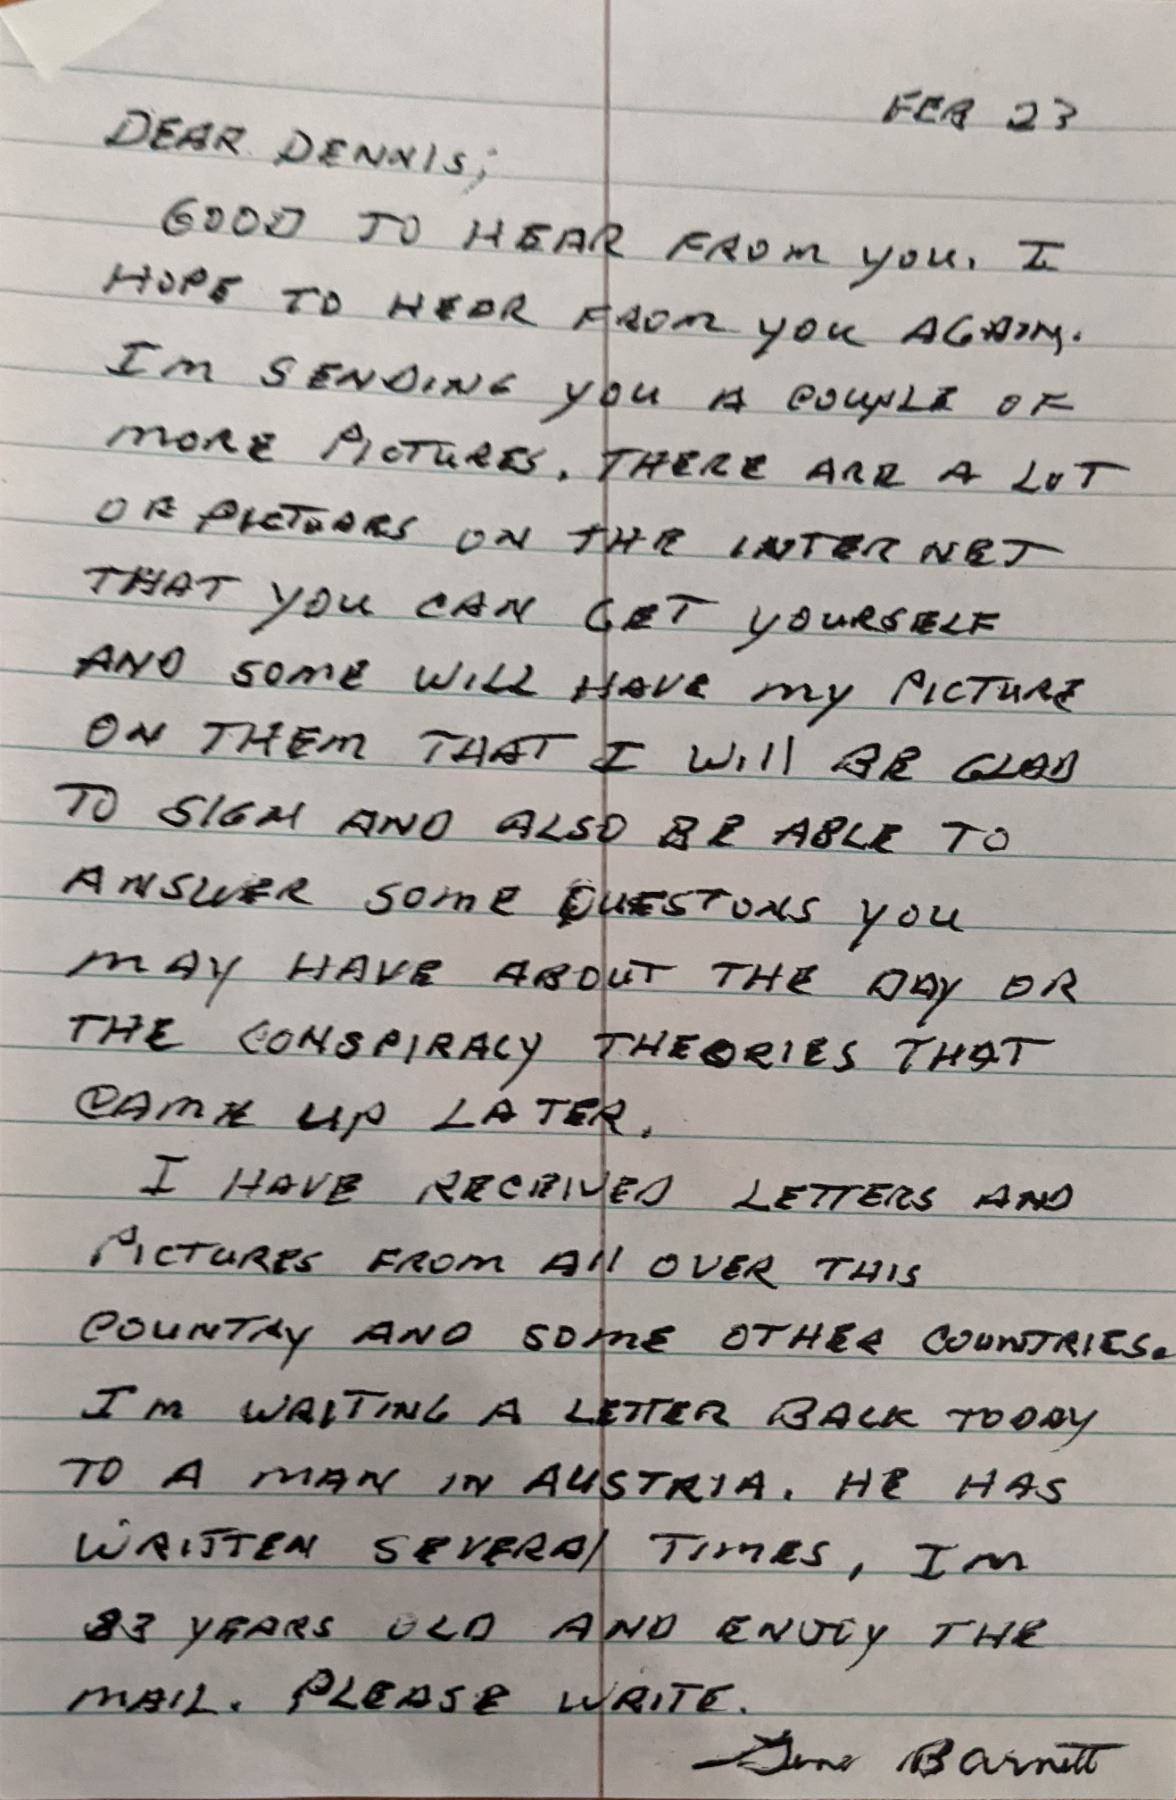 FEB 23
DEAR DENNIS;
GOOD TO HEAR FROM YOU. I
HOPE TO HEAR FROM YOU AGAIN.
I'M SENDING YOU A COUPLE OF
MORE PICTURES. THERE ARE A LOT
OF PICTUARS ON THE INTERNET
THAT YOU CAN GET YOURSELF
AND SOME WILL HAVE MY PICTURE
ON THEM THAT I WILL BE GLAD
TO SIGN AND ALSO BE ABLE TO
ANSWER SOME QUESTONS YOU
MAY HAVE ABOUT THE DAY OR
THE CONSPIRACY THEORIES THAT
CAME UP LATER.
I HAVE RECEIVED LETTERS AND
PICTURES FROM All OVER THIS
COUNTRY AND SOME OTHER COUNTRIES.
I'M WAITING A LETTER BACK TODAY
TO A MAN IN AUSTRIA. HE HAS
WRITTEN SEVERAl TIMES, I'M
83 YEARS OLD AND ENJOY THE
MAIL. PLEASE WRITE.
Gene Barnett